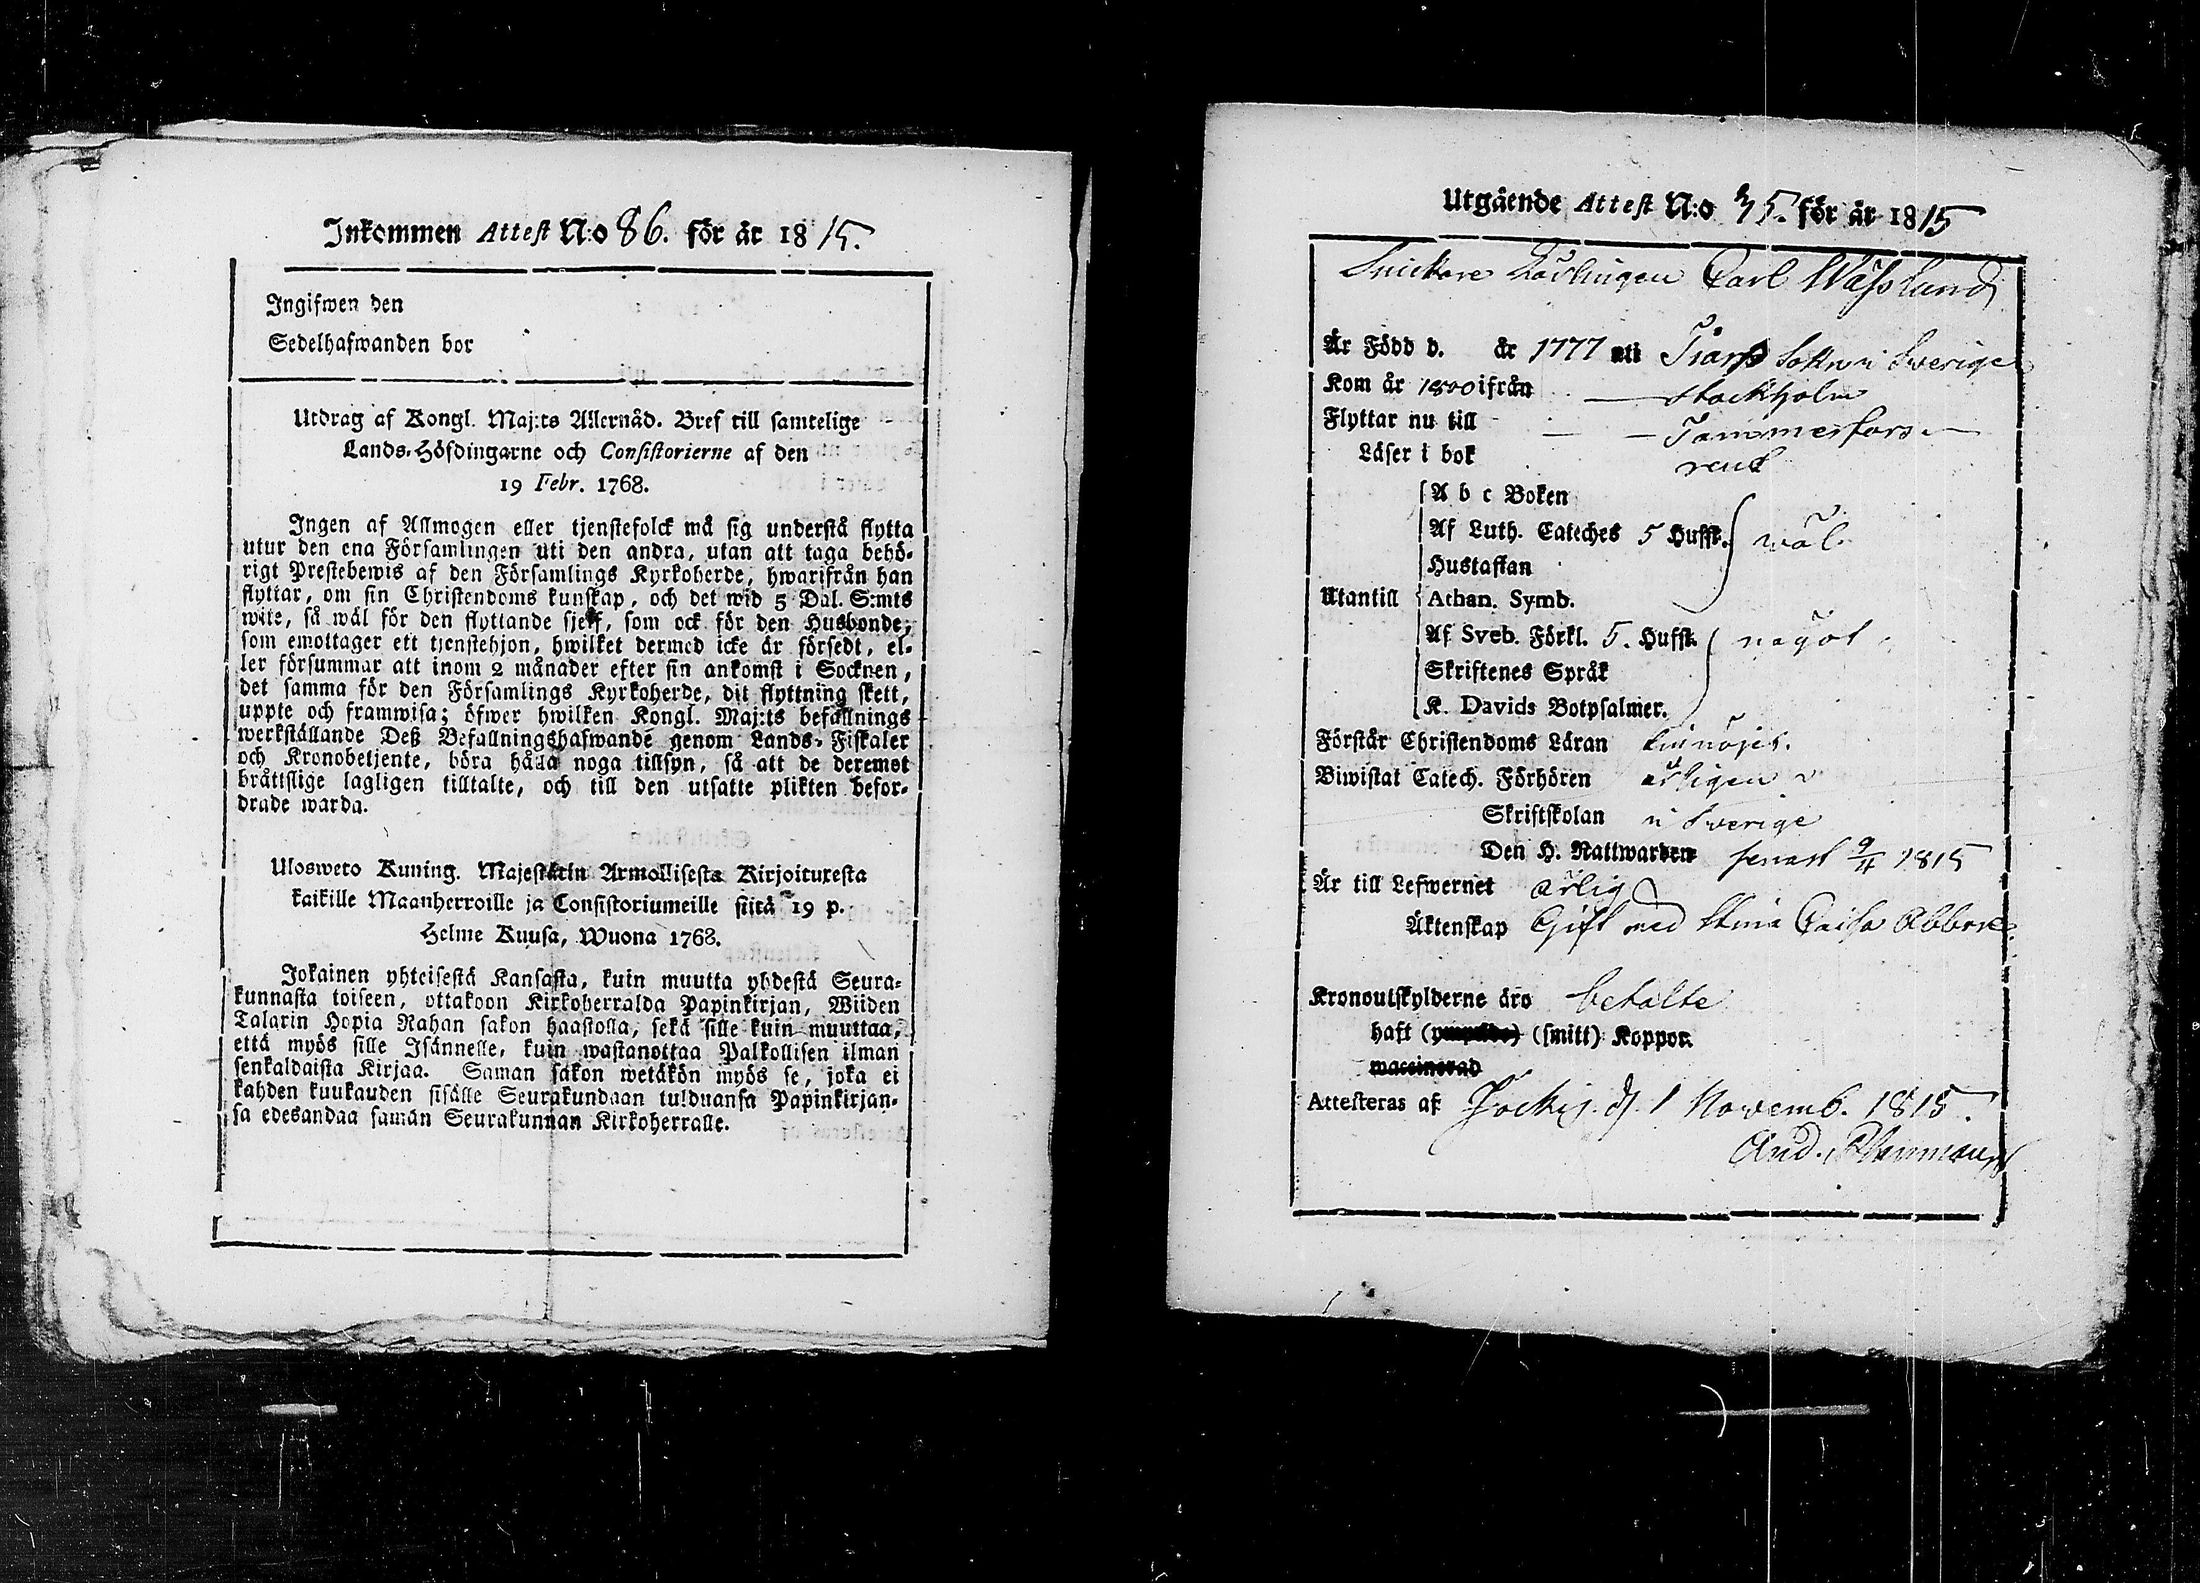 Inkommen Attest N:o 86. för år 1815.
Ingifwen den
Sedelhafwanden bor
Utdrag af Kongl. Maj:ts Allernåd. Bref till samtelige
Lands-Höfdingarne och Consistorierne af den
19 Febr. 1768.
Ingen af Allmogen eller tjenstefolck må sig understå flytta
utur den ena Församlingen uti den andra, utan att taga behö-
rigt Prestebewis af den Församlings Kyrkoherde, hwarifrån han
flyttar, om sin Christendoms kunskap, och det wid 5 Dal. S:mts
wite, så wäl för den flyttande sjelf, som ock för den Husbonde,
som emottager ett tjenstehjon, hwilket dermed icke är försedt, el-
ler försummar att inom 2 månader efter sin ankomst i Socknen,
det samma för den Församlings Kyrkoherde, dit flyttning skett,
uppte och framwisa; öfwer hwilken Kongl. Maj:ts befallnings
werkställande Deß Befallningshafwande genom Lands-Fiskaler
och Kronobetjente, böra hålla noga tillsyn, så att de deremot
bråttslige lagligen tilltalte, och till den utsatte plikten befor-
drade warda.
Ulosweto Kuning. Majestetin Armollisesta Kirjoituxesta
kaikille Maanherroille ja Consistoriumeille siitä 19 p.
Helme Kuusa, Wuona 1768.
Jokainen yhteisestä Kansasta, kuin muutta yhdestä Seura-
kunnasta toiseen, ottakoon Kirkoherralda Papinkirjan, Wiiden
Talarin Hopia Rahan sakon haastolla, sekä sille kuin muuttaa,
että myös sille Isännelle, kuin wastanottaa Palkollisen ilman
senkaldaista Kirjaa. Saman sakon wetäkön myös se, joka ei
kahden kuukauden sisälle Seurakundaan tulduansa Papinkirjan-
sa edesandaa saman Seurakunnan Kirkoherralle.
Utgående Attest N:o 35. för år 1815
Snickare Lärlingen Carl Wässlund
Är Född d. år 1777 uti Sokn i Swerige
Kom år 1800 ifrån — Stockholm
Flyttar nu till — — Tammerfors —
Läser i bok rent
A b c Boken
Af Luth. Cateches 5 Hufst. wäl
Hustaflan
Utantill Athan. Symb.
Af Sveb. Förkl. 5. Hufst. något
Skriftenes Språk
K. Davids Botpsalmer.
Förstår Christendoms Läran
Biwistat Catech. Förhören årligen
Skriftskolan i Swerige
Den H. Nattwarden senast 9/4 1815
Är till Lefwernet ärlig
Äktenskap Gift med Stina Caisa Abborr
Kronoutskylderne äro betalte
haft (ympade) (smitt) Koppor.
waccinerad
Attesteras af Jockis. d. 1 Novemb. 1815.
And.